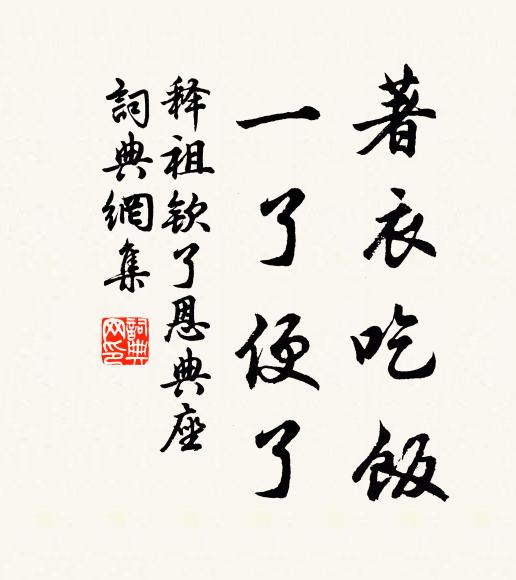 著衣吃飯
一了便了
释祖钦了恩典座
詞典網集
詞典
网印